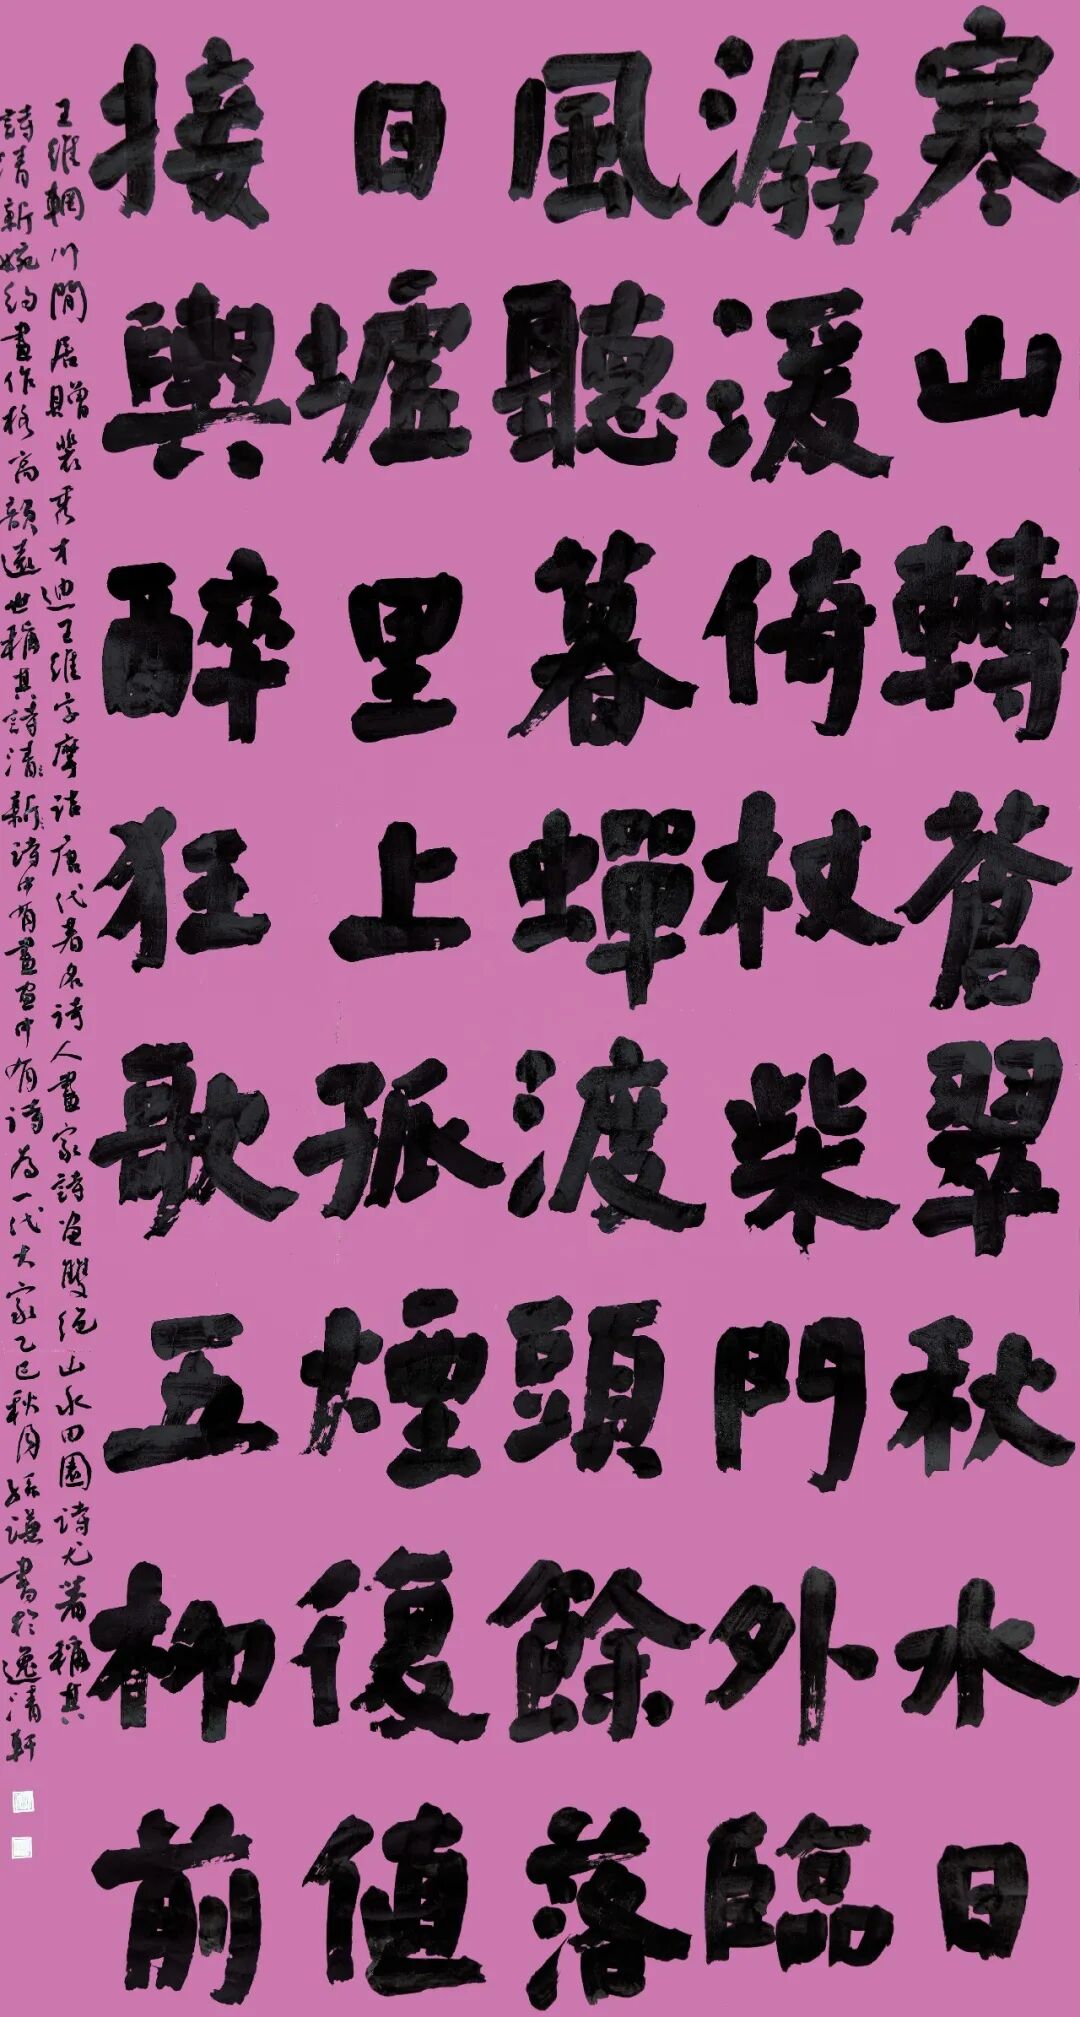 寒山轉蒼翠秋水日
潺湲倚杖柴門外臨
風聽暮蟬渡頭餘落
日墟里上孤煙復值
接輿醉狂歌五柳前
王維輞川閒居贈裴秀才迪王維字摩詰唐代著名詩人畫家詩画雙絕山水田園詩尤著稱其
詩清新婉約畫作格高韻遠世稱其詩清新詩中有畫画中有詩為一代大家乙巳秋月謙書於逸清軒